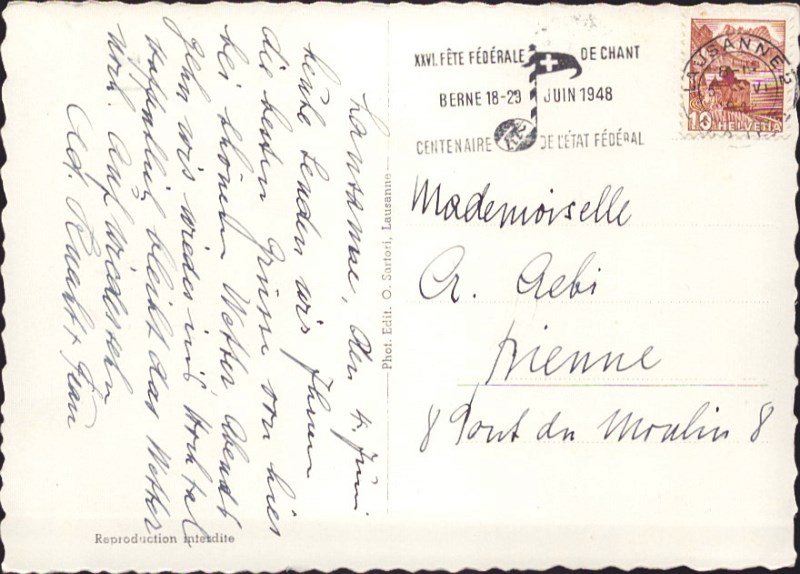 XXVI. FÊTE FÉDÉRALE DE CHANT
BERNE 18-29 JUIN 1948
CENTENAIRE DE L'ÉTAT FÉDÉRAL
LAUSANNE 2
10 HELVETIA
Mademoiselle
Cr. Aebi
Bienne
8 Pont du Moulin 8
Lausanne, den 4. Juni
heute senden wir Ihnen
die besten Grüsse von hier
bei schönem Wetter Abends
gehn wir wieder ins
hoffentlich bleibt das Wetter
noch. Auf Wiedersehn
Ad. + Frau
Phot. Edit. O. Sartori, Lausanne
Reproduction interdite